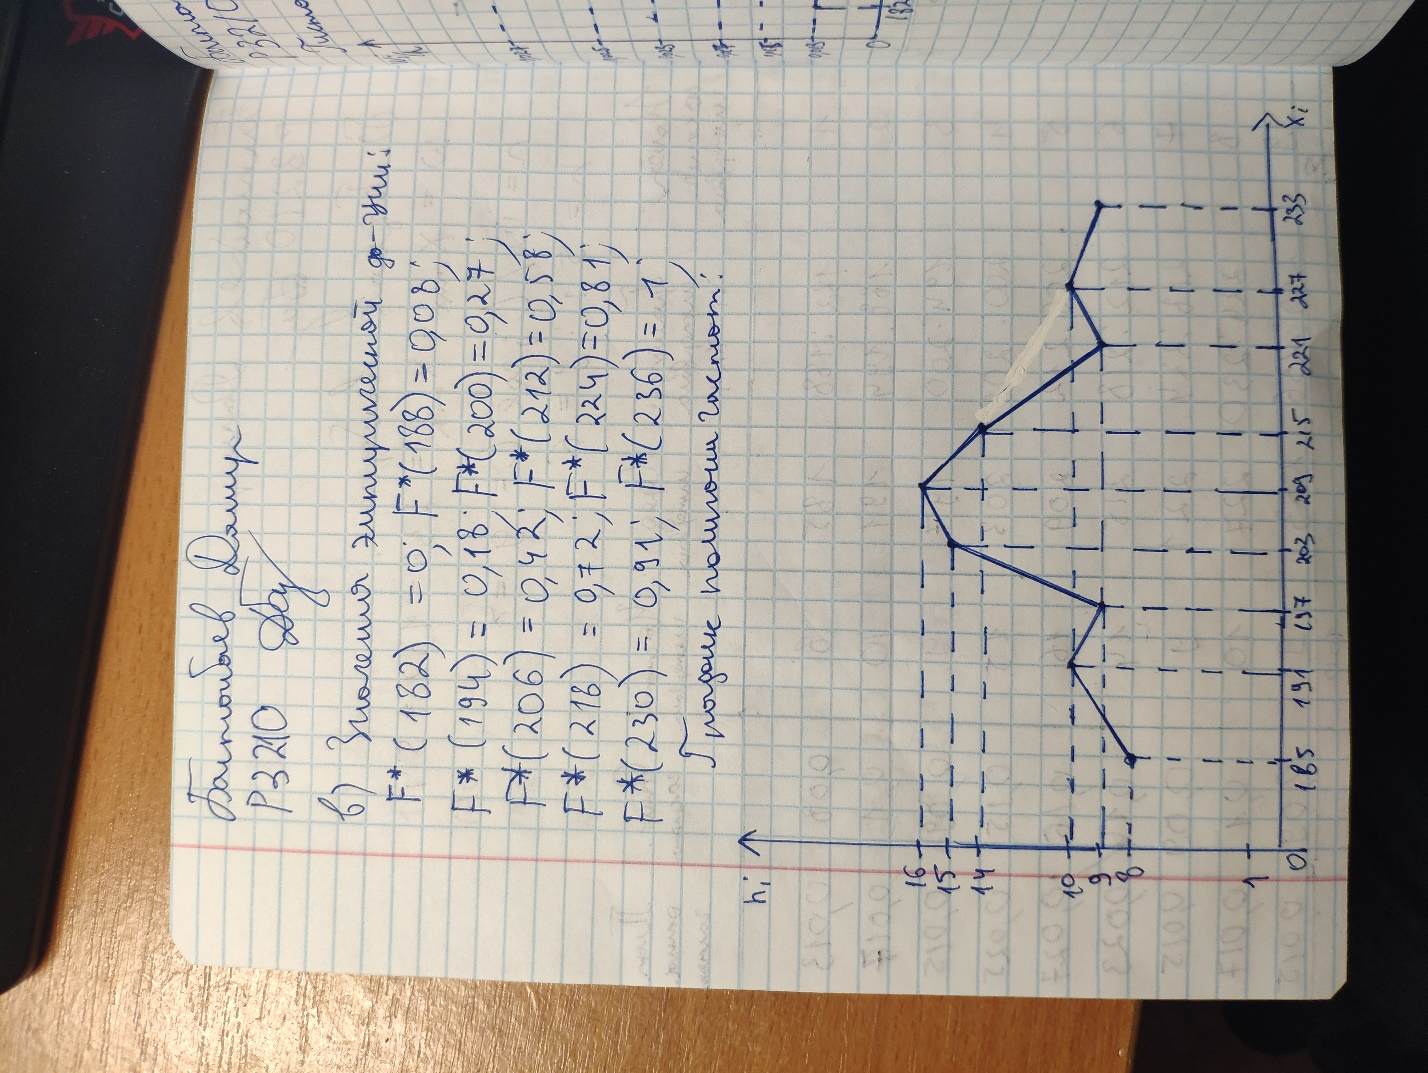 Балтабаев Дамир
P3210
в) Значения эмпирической ф-ции:
F*(182) = 0; F*(188) = 0,08;
F*(194) = 0,18; F*(200) = 0,27;
F*(206) = 0,42; F*(212) = 0,58;
F*(218) = 0,72; F*(224) = 0,81;
F*(230) = 0,91; F*(236) = 1
График полигон частот:
ni
16
15
14
10
9
8
1
0
185 191 197 203 209 215 221 227 233
xi
0
182